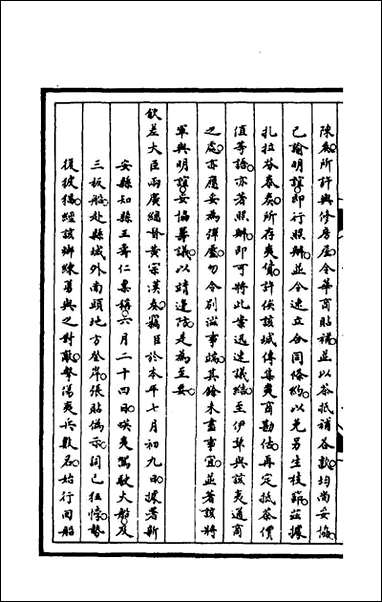 陳奏所許興修房屋令華商貼補並以茶抵補各數均尚妥協
已諭明誼即行照辦並令速立合同條約以免另生枝節茲據
扎拉芬泰奏所存夷貨許俟該城傳集夷商勘估再定抵茶價
值等語亦著照辦即可將此案迅速議結至伊犁與該夷通商
之處亦應妥為彈壓勿令別滋事端其餘未盡事宜並著該將
軍與明誼妥協籌議以靖邊陲是為至要
欽差大臣兩廣總督黃宗漢奏竊臣於本年七月初九日據署新
安縣知縣王壽仁稟稱六月二十四日㗸夷駕駛火船及
三板船赴縣城外南頭地方登岸張貼偽示詞已狂悖勢
復披猖經該鄉練勇與之對敵擊傷夷兵數名始行回船